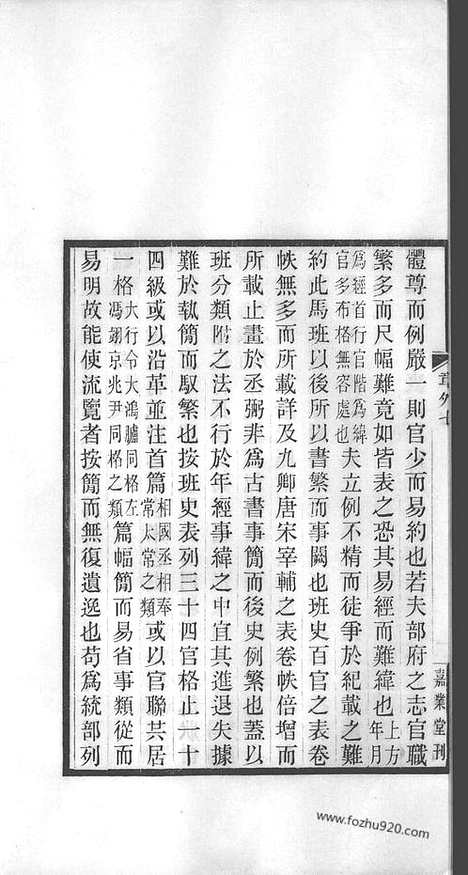 體尊而例嚴一則官少而易約也若夫部府之志官職
繁多而尺幅難竟如皆表之恐其易經而難緯也上方年月
爲經首行官階爲緯官多布格無容處也夫立例不精而徒爭於紀載之難
約此馬班以後所以書繁而事闕也班史百官之表卷
帙無多而所載詳及九卿唐宋宰輔之表卷帙倍增而
所載止畫於丞弼非爲古書事簡而後史例繁也蓋以
班分類附之法不行於年經事緯之中宜其進退失據
難於執簡而馭繁也按班史表列三十四官格止一十
四級或以沿革並注首篇相國丞相奉常太常之類或以官聯共居
一格大行令大鴻臚同格左馮翊京兆尹同格之類篇幅簡而易省事類從而
易明故能使流覽者按簡而無復遺逸也苟爲統部列
章外七
嘉業堂刊
www.fozhu920.com